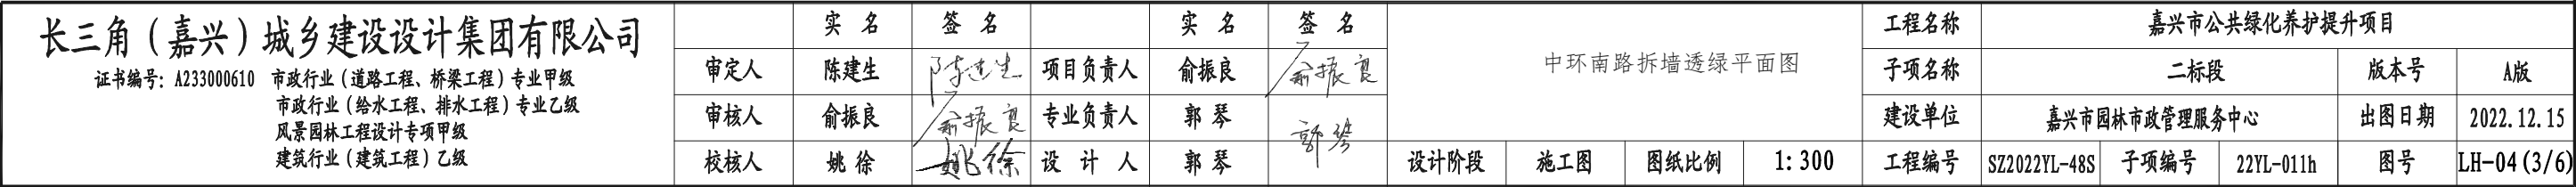 长三角（嘉兴）城乡建设设计集团有限公司
证书编号：A233000610 市政行业（道路工程、桥梁工程）专业甲级
市政行业（给水工程、排水工程）专业乙级
风景园林工程设计专项甲级
建筑行业（建筑工程）乙级
实 名 签 名 实 名 签 名
审定人 陈建生 陈建生 项目负责人 俞振良 俞振良
审核人 俞振良 俞振良 专业负责人 郭 琴 郭琴
校核人 姚 徐 姚徐 设 计 人 郭 琴
中环南路拆墙透绿平面图
设计阶段 施工图 图纸比例 1:300
工程名称 嘉兴市公共绿化养护提升项目
子项名称 二标段 版本号 A版
建设单位 嘉兴市园林市政管理服务中心 出图日期 2022.12.15
工程编号 SZ2022YL-48S 子项编号 22YL-011h 图号 LH-04(3/6)